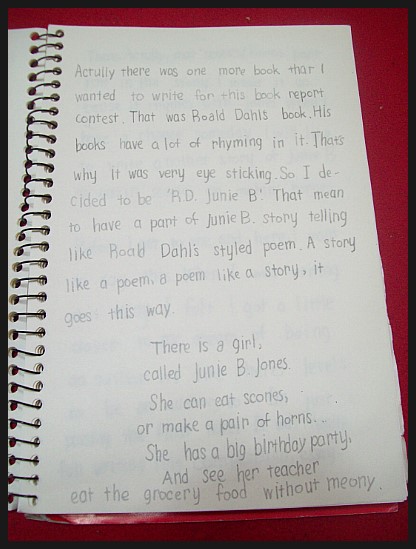 Actully there was one more book that I
wanted to write for this book report
contest. That was Roald Dahls book. His
books have a lot of rhyming in it. That's
why it was very eye sticking. So I de-
cided to be 'R.D. Junie B.' That mean
to have a part of Junie B. story telling
like Roald Dahl's styled poem. A story
like a poem, a poem like a story, it
goes this way.
There is a girl,
called Junie B. Jones.
She can eat scones,
or make a pair of horns...
She has a big birthday party,
And see her teacher
eat the grocery food without meony.